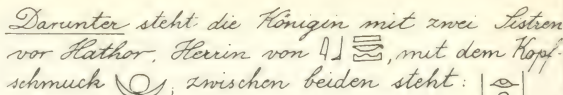 Darunter steht die Königin mit zwei Sistren
vor Hathor, Herrin von 𓇋𓃀𓈗, mit dem Kopf-
schmuck; zwischen beiden steht: